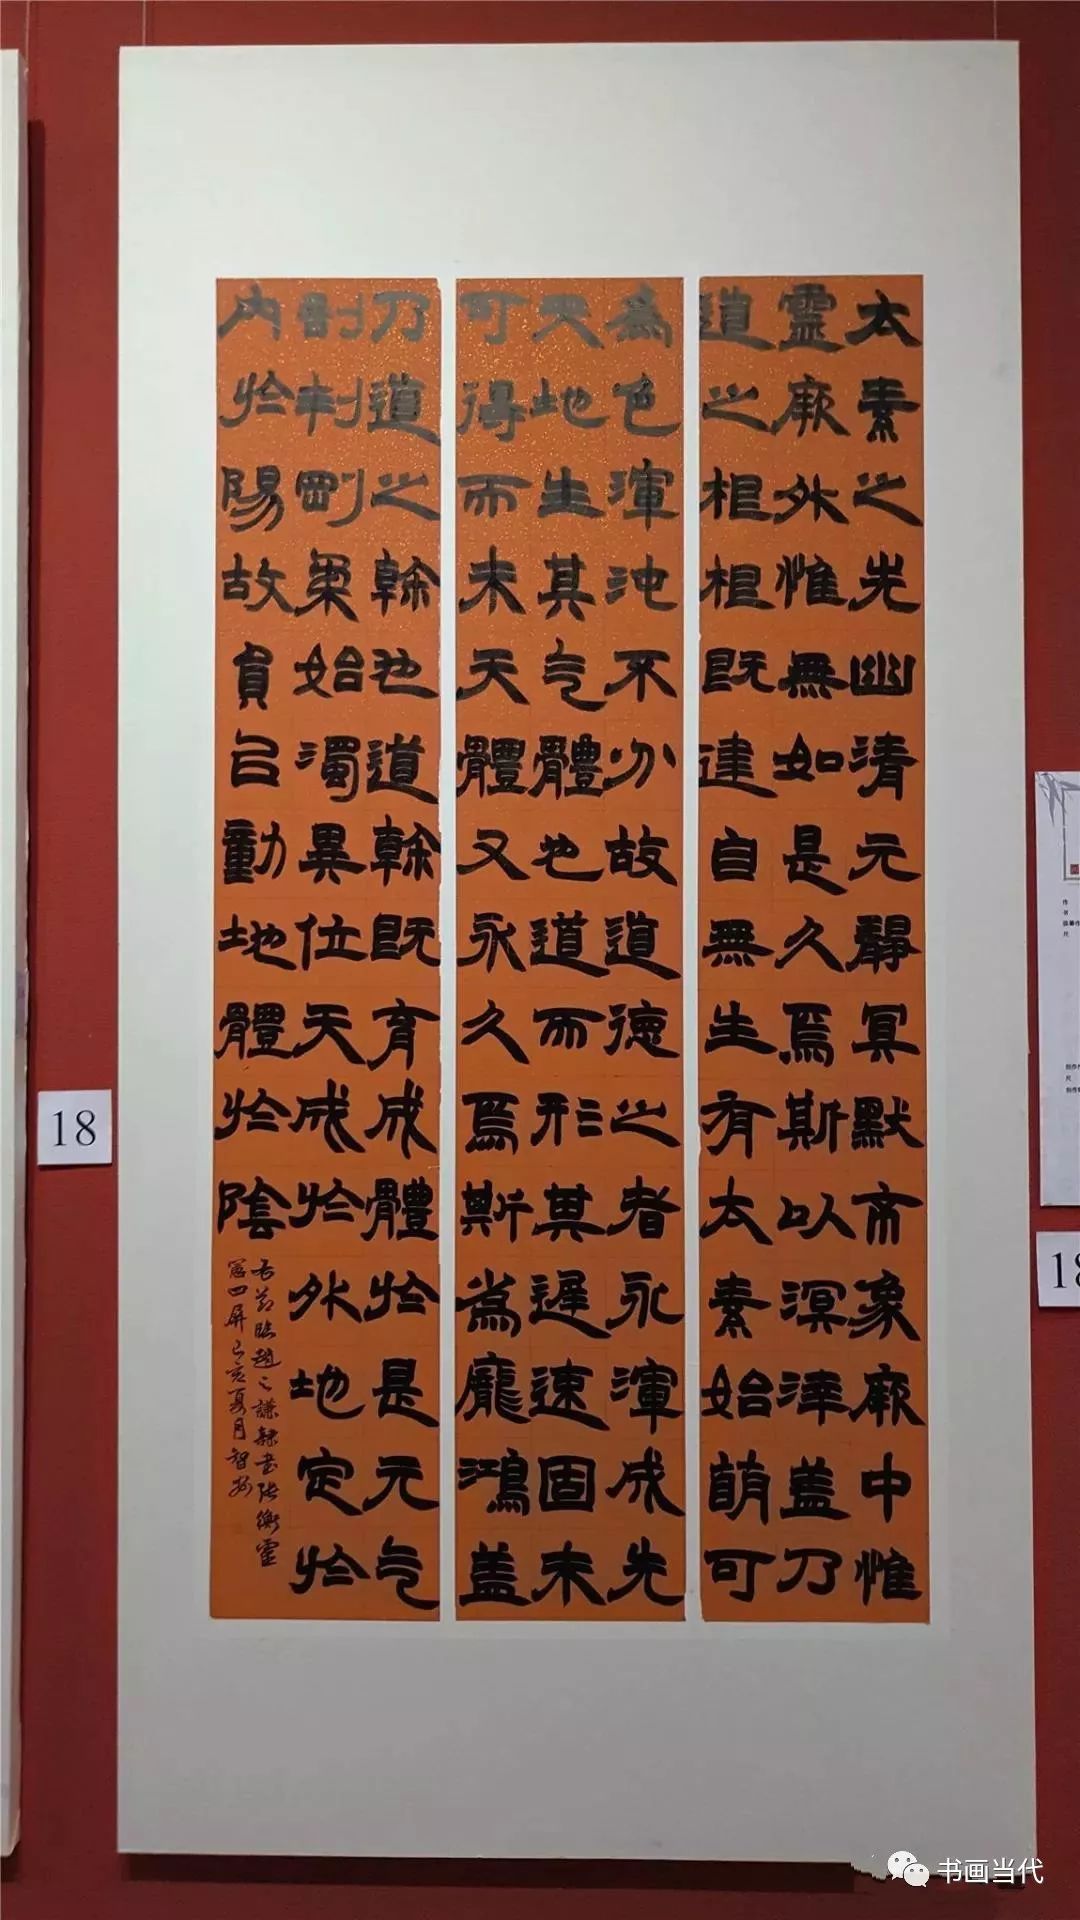 太素之先幽清元靜冥默帝象厥中惟
靈厥外惟無如是久焉斯以溟涬蓋乃
道之根根既建自無生有太素始萌可
為色渾沌不分故道德之者永渾成先
天地生其气體也道而形其遲速固未
可得而未天體又永久焉斯為龐鴻蓋
乃道之榦也道榦既育成體於是元气
剖判剛柔始濁異位天成於外地定於
內於陽故員以動地體於陰
臨趙之謙隸書張衡靈
憲四屏己亥夏月智
18
18
书画当代